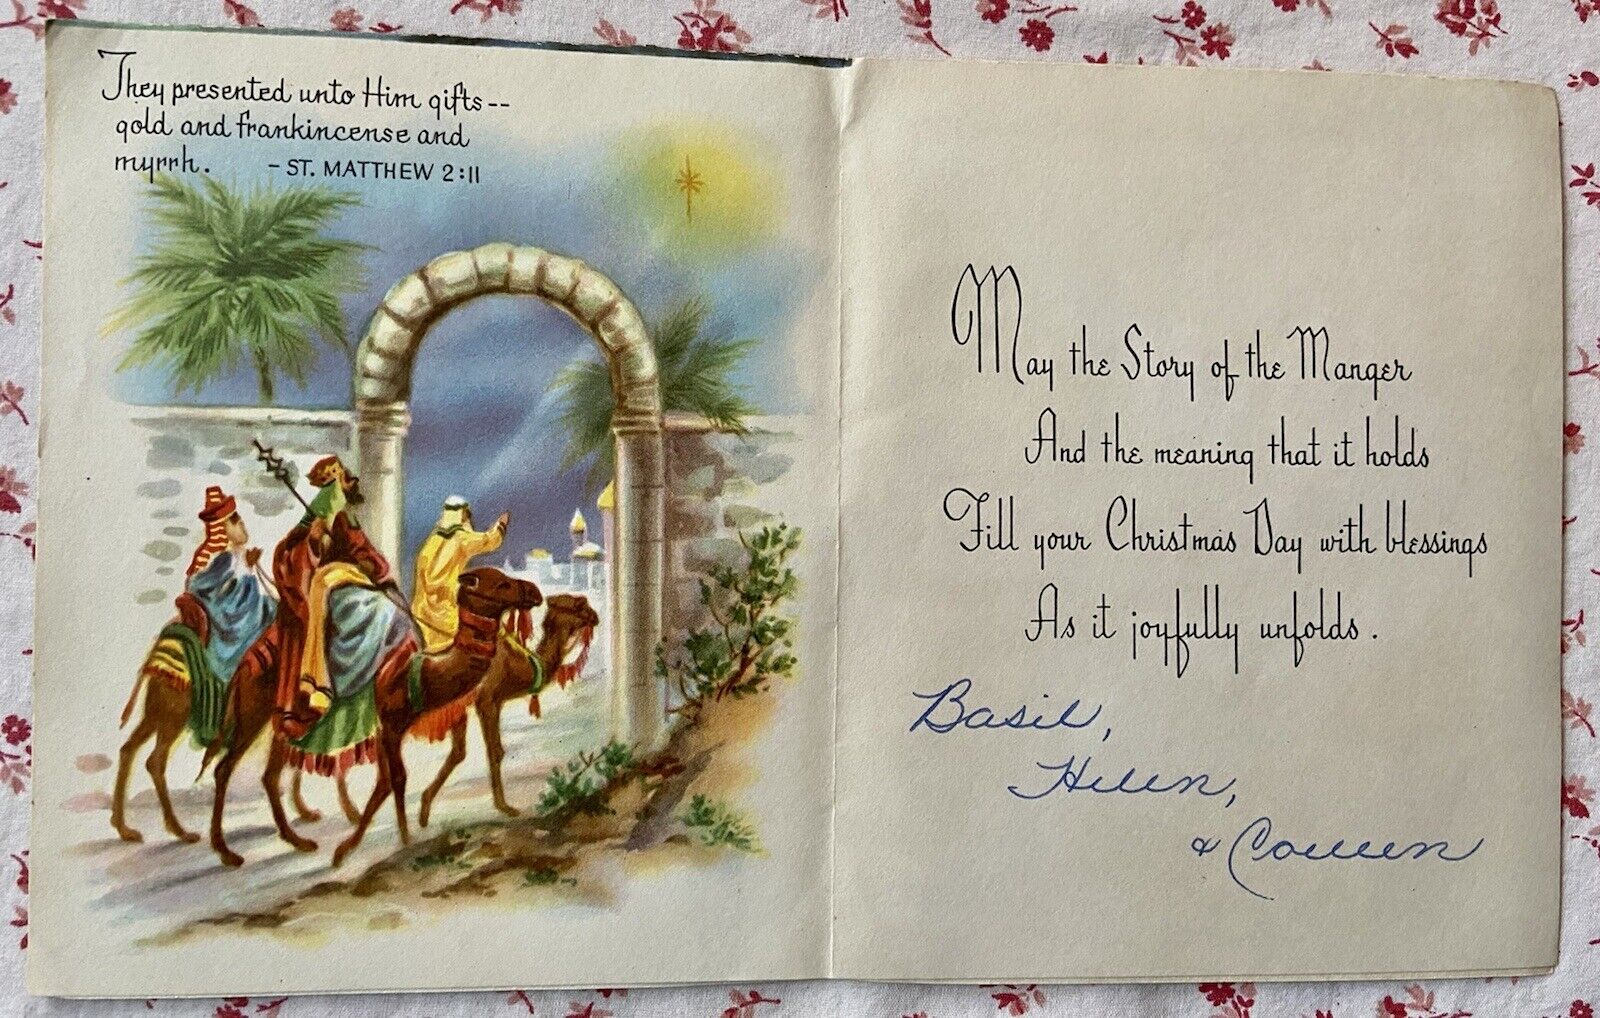 They presented unto Him gifts--
gold and frankincense and
myrrh. - ST. MATTHEW 2:11
May the Story of the Manger
And the meaning that it holds
Fill your Christmas Day with blessings
As it joyfully unfolds.
Basil,
Helen,
&